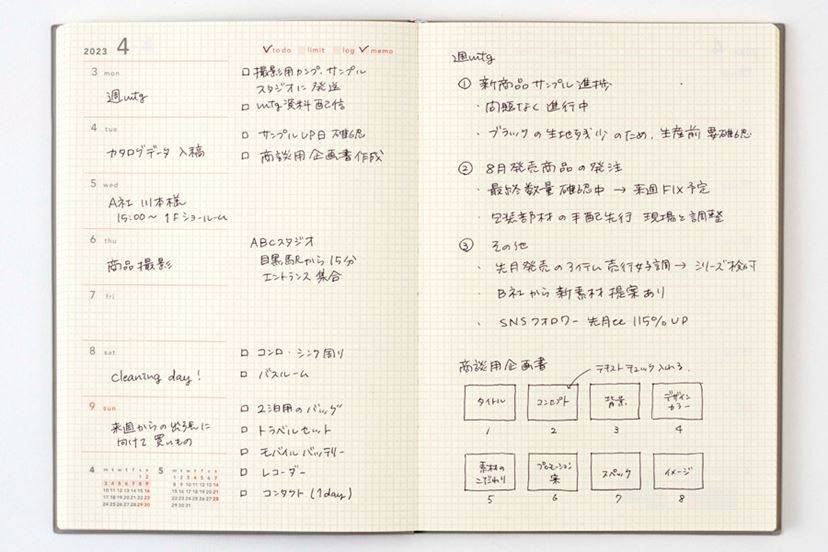 2023 4
todo limit log memo
3 mon
週mtg
撮影用カンプ、サンプル
スタジオに 発送
mtg資料配信
4 tue
カタログデータ 入稿
サンプルUP日 確認
商談用企画書作成
5 wed
A社 川本様
15:00〜 1Fショールーム
6 thu
商品撮影
ABCスタジオ
目黒駅から15分
エントランス 集合
7 fri
8 sat
cleaning day!
コンロ・シンク周り
バスルーム
9 sun
来週からの出張に
向けて買いもの
2泊用のバッグ
トラベルセット
モバイルバッテリー
レコーダー
コンタクト (1day)
4 m t w t f s s
1 2
3 4 5 6 7 8 9
10 11 12 13 14 15 16
17 18 19 20 21 22 23
24 25 26 27 28 29 30
5 m t w t f s s
1 2 3 4 5 6 7
8 9 10 11 12 13 14
15 16 17 18 19 20 21
22 23 24 25 26 27 28
29 30 31
週mtg
① 新商品サンプル進捗
・問題なく進行中
・ブラックの生地残少のため、生産前 要確認
② 8月発売商品の発注
・最終数量確認中 → 来週FIX予定
・包装部材の手配先行 現場と調整
③ その他
・先月発売のアイテム売行好調→ シリーズ検討
・B社から新素材提案あり
・SNSフォロワー 先月比 115%UP
商談用企画書
テキストチェック入れる.
タイトル
コンセプト
背景
デザイン
カラー
1 2 3 4
素材の
こだわり
プロモーション
案
スペック
イメージ
5 6 7 8